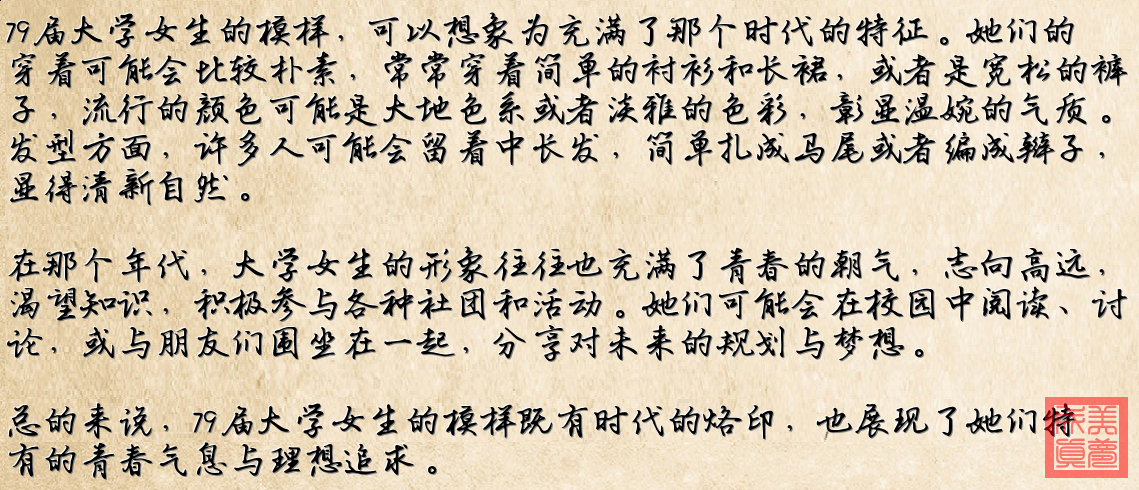 79届大学女生的模样，可以想象为充满了那个时代的特征。她们的
穿着可能会比较朴素，常常穿着简单的衬衫和长裙，或者是宽松的裤
子，流行的颜色可能是大地色系或者淡雅的色彩，彰显温婉的气质。
发型方面，许多人可能会留着中长发，简单扎成马尾或者编成辫子，
显得清新自然。
在那个年代，大学女生的形象往往也充满了青春的朝气，志向高远，
渴望知识，积极参与各种社团和活动。她们可能会在校园中阅读、讨
论，或与朋友们围坐在一起，分享对未来的规划与梦想。
总的来说，79届大学女生的模样既有时代的烙印，也展现了她们特
有的青春气息与理想追求。
美夢
成真